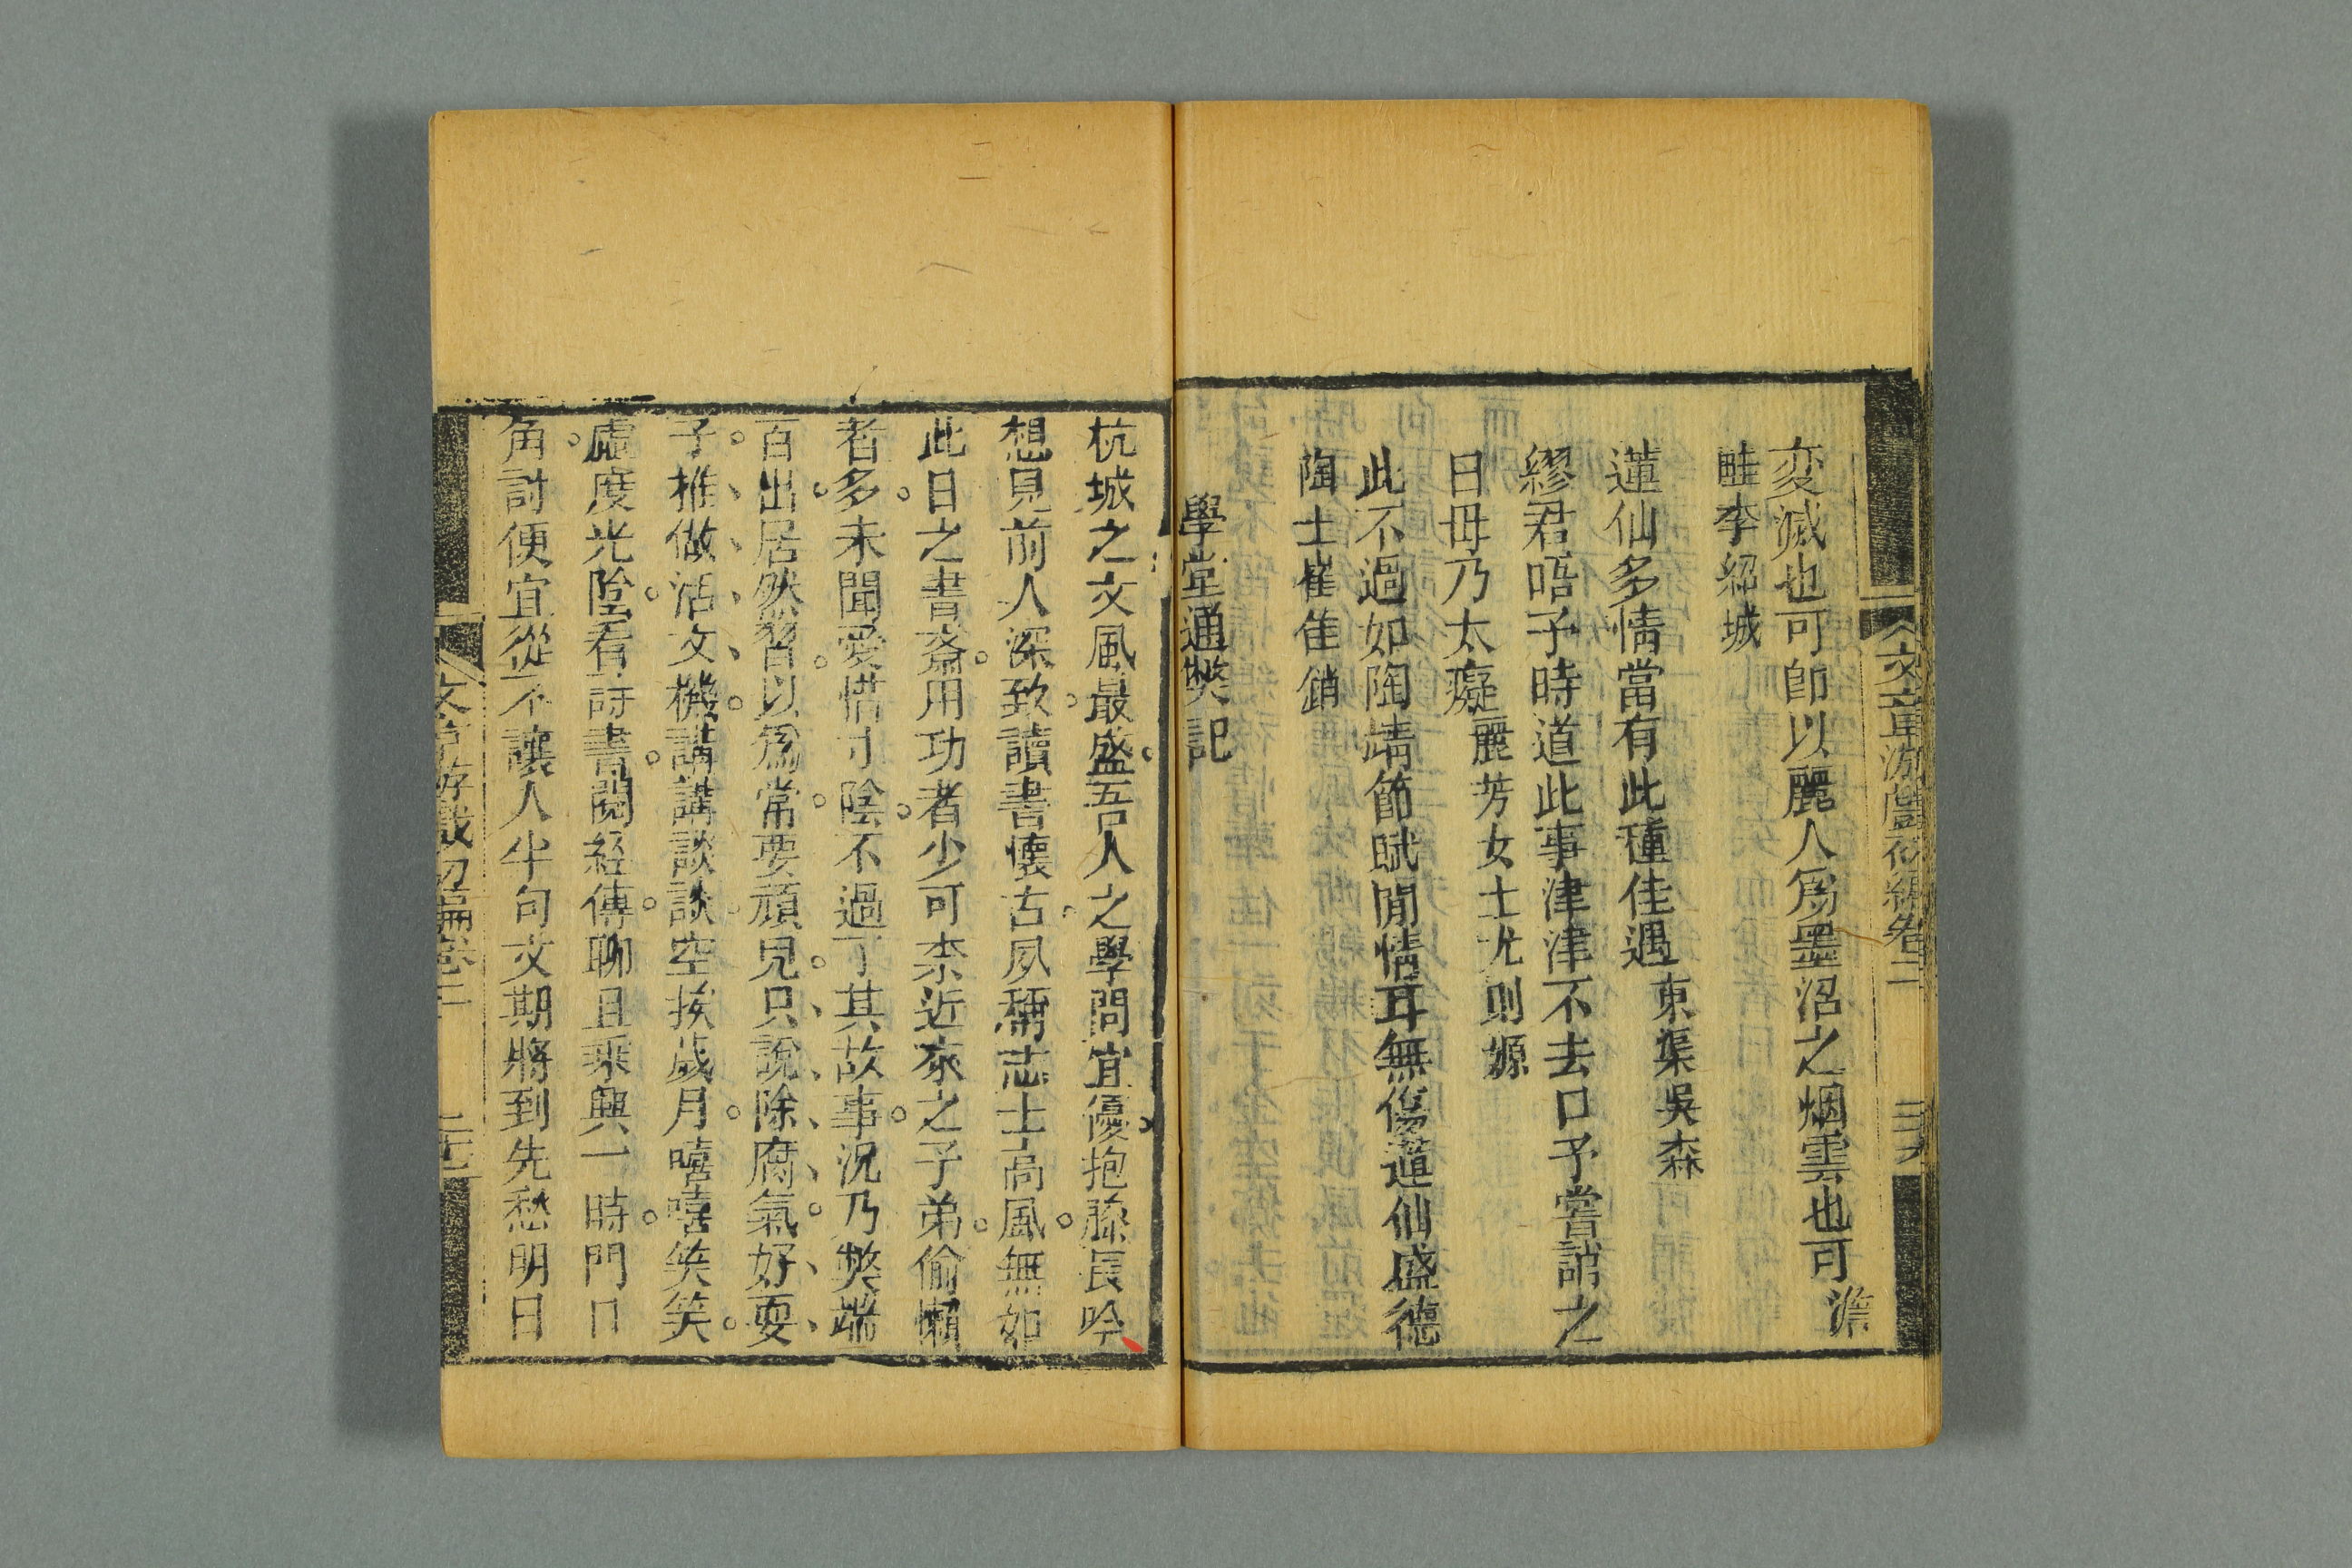 文章游戲初編卷二
変滅也可卽以麗人爲墨沼之烟雲也可 澹
畦李紹城
蓮仙多情當有此種佳遇 東渠吳森
繆君晤予時道此事津津不去口予嘗誚之
曰毋乃太癡 麗芳女士尤則嫄
此不過如陶靖節賦閒情耳無傷蓮仙盛德
陶士崔佳銷
學堂通獘記
杭城之文風最盛吾人之學問宜優抱膝長吟
想見前人深致讀書懐古夙稱志士高風無如
此日之書齋用功者少可柰近來之子弟偷懶
者多未聞愛惜寸陰不過了其故事況乃獘端
百出居然習以爲常要頑皃只說除腐氣好耍
子推做活文機講講談談空挨歲月嘻嘻笑笑
虛度光陰看詩書閱經傳聊且乘興一時門口
角討便宜從不讓人半句文期將到先愁明日
文章游戲初編卷二